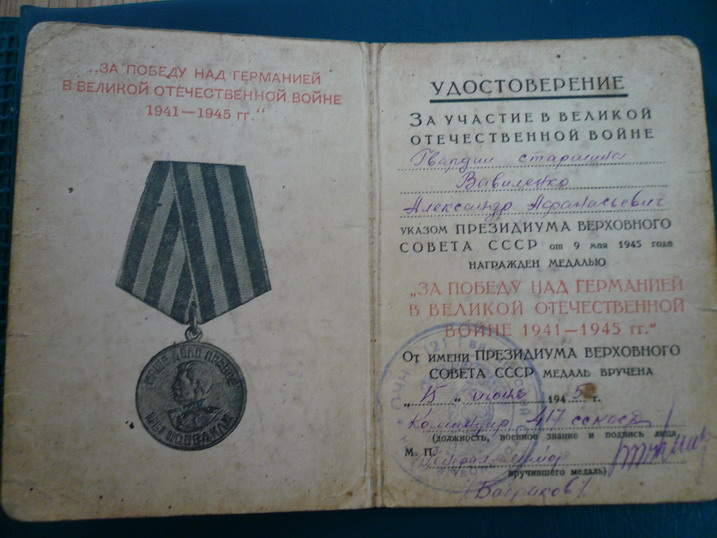 „ЗА ПОБЕДУ НАД ГЕРМАНИЕЙ
В ВЕЛИКОЙ ОТЕЧЕСТВЕННОЙ ВОЙНЕ
1941—1945 гг.“
НАШЕ ДЕЛО ПРАВОЕ
МЫ ПОБЕДИЛИ
УДОСТОВЕРЕНИЕ
ЗА УЧАСТИЕ В ВЕЛИКОЙ
ОТЕЧЕСТВЕННОЙ ВОЙНЕ
Гвардии старшина
Вавиленко
Александр Афанасьевич
УКАЗОМ ПРЕЗИДИУМА ВЕРХОВНОГО
СОВЕТА СССР от 9 мая 1945 года
НАГРАЖДЕН МЕДАЛЬЮ
„ЗА ПОБЕДУ НАД ГЕРМАНИЕЙ
В ВЕЛИКОЙ ОТЕЧЕСТВЕННОЙ
ВОЙНЕ 1941—1945 гг.“
От имени ПРЕЗИДИУМА ВЕРХОВНОГО
СОВЕТА СССР МЕДАЛЬ ВРУЧЕНА
„15 “ июня 1945 г.
Командир 417
(должность, военное звание и подпись лица,
М. П.
вручившего медаль)